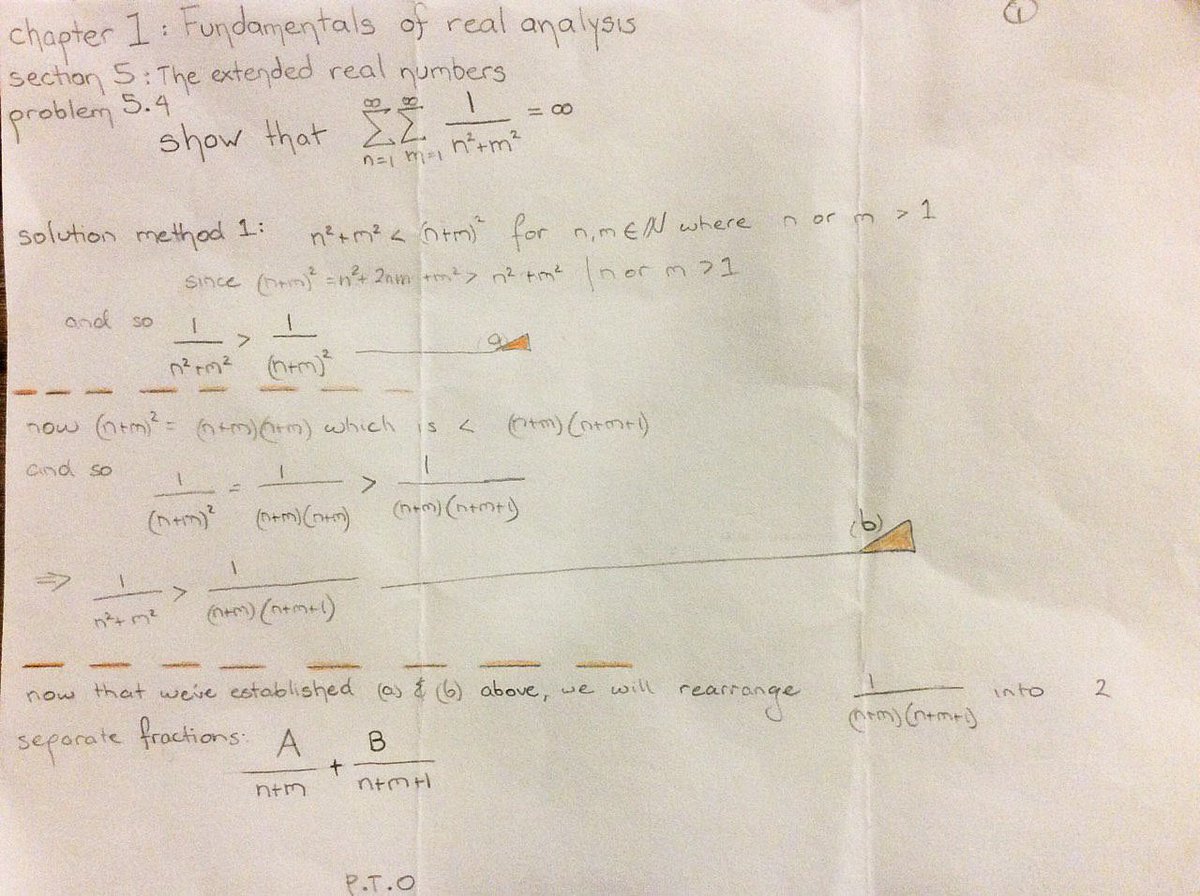 ①
chapter 1: Fundamentals of real analysis
section 5: The extended real numbers
problem 5.4
show that ∑_{n=1}^{∞} ∑_{m=1}^{∞} 1/(n²+m²) = ∞
solution method 1: n²+m² < (n+m)² for n,m ∈ ℕ where n or m > 1
since (n+m)² = n²+2nm+m² > n²+m² | n or m > 1
and so 1/(n²+m²) > 1/(n+m)² (a)
now (n+m)² = (n+m)(n+m) which is < (n+m)(n+m+1)
and so 1/(n+m)² = 1/((n+m)(n+m)) > 1/((n+m)(n+m+1))
⇒ 1/(n²+m²) > 1/((n+m)(n+m+1)) (b)
now that we've established (a) & (b) above, we will rearrange 1/((n+m)(n+m+1)) into 2
separate fractions: A/(n+m) + B/(n+m+1)
P.T.O